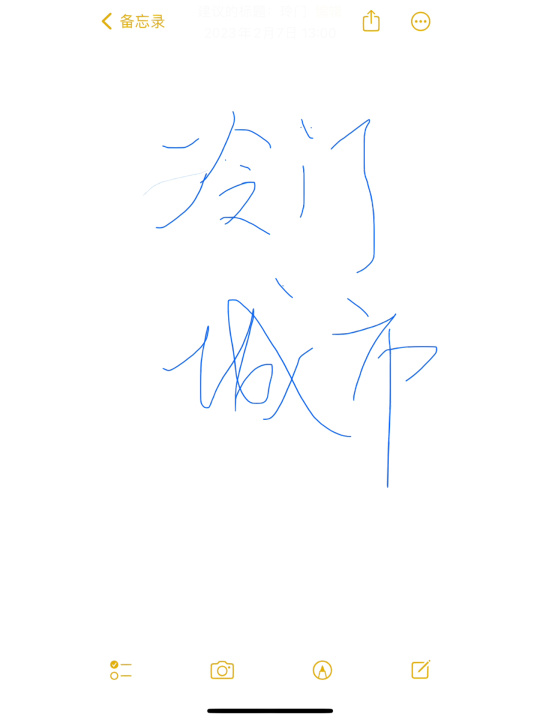 备忘录
冷门
城市